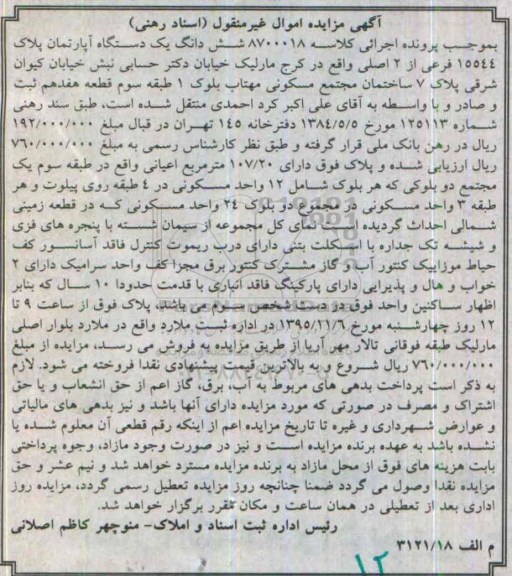 آگهی مزایده اموال غیرمنقول (اسناد رهنی)
بموجب پرونده اجرائی کلاسه ۸۷۰۰۰۱۸ شش دانگ یک دستگاه آپارتمان پلاک
۱۵۵۴۴ فرعی از ۲ اصلی واقع در کرج مارلیک خیابان دکتر حسابی نبش خیابان کیوان
شرقی پلاک ۷ ساختمان مجتمع مسکونی مهتاب بلوک ۱ طبقه سوم قطعه هفدهم ثبت
و صادر و با واسطه به آقای علی اکبر کرد احمدی منتقل شده است، طبق سند رهنی
شماره ۱۲۵۱۱۳ مورخ ۱۳۸۴/۵/۵ دفترخانه ۱۴۵ تهران در قبال مبلغ ۱۹۲/۰۰۰/۰۰۰
ریال در رهن بانک ملی قرار گرفته و طبق نظر کارشناس رسمی به مبلغ ۷۶۰/۰۰۰/۰۰۰
ریال ارزیابی شده و پلاک فوق دارای ۱۰۷/۲۰ مترمربع اعیانی واقع در طبقه سوم یک
مجتمع دو بلوکی که هر بلوک شامل ۱۲ واحد مسکونی در ۴ طبقه روی پیلوت و هر
طبقه ۳ واحد مسکونی در مجموع دو بلوک ۲۴ واحد مسکونی که در قطعه زمینی
شمالی احداث گردیده است نمای کل مجموعه از سیمان شسته با پنجره های فزی
و شیشه تک جداره با اسکلت بتنی دارای درب ریموت کنترل فاقد آسانسور کف
حیاط موزاییک کنتور آب و گاز مشترک کنتور برق مجزا کف واحد سرامیک دارای ۲
خواب و هال و پذیرایی دارای پارکینگ فاقد انباری با قدمت حدودا ۱۰ سال که بنابر
اظهار ساکنین واحد فوق در ید شخص سوم می باشد. پلاک فوق از ساعت ۹ تا
۱۲ روز چهارشنبه مورخ ۱۳۹۵/۱۱/۶ در اداره ثبت ملارد واقع در ملارد بلوار اصلی
مارلیک طبقه فوقانی تالار مهر آریا از طریق مزایده به فروش می رسد، مزایده از مبلغ
۷۶۰/۰۰۰/۰۰۰ ریال شروع و به بالاترین قیمت پیشنهادی نقدا فروخته می شود. لازم
به ذکر است پرداخت بدهی های مربوط به آب، برق، گاز اعم از حق انشعاب و یا حق
اشتراک و مصرف در صورتی که مورد مزایده دارای آنها باشد و نیز بدهی های مالیاتی
و عوارض شهرداری و غیره تا تاریخ مزایده اعم از اینکه رقم قطعی آن معلوم شده یا
نشده باشد به عهده برنده مزایده است و نیز در صورت وجود مازاد، وجوه پرداختی
بابت هزینه های فوق از محل مازاد به برنده مزایده مسترد خواهد شد و نیم عشر و حق
مزایده نقدا وصول می گردد ضمنا چنانچه روز مزایده تعطیل رسمی گردد، مزایده روز
اداری بعد از تعطیلی در همان ساعت و مکان مقرر برگزار خواهد شد.
رئیس اداره ثبت اسناد و املاک- منوچهر کاظم اصلانی
م الف ۳۱۲۱/۱۸
۱۲